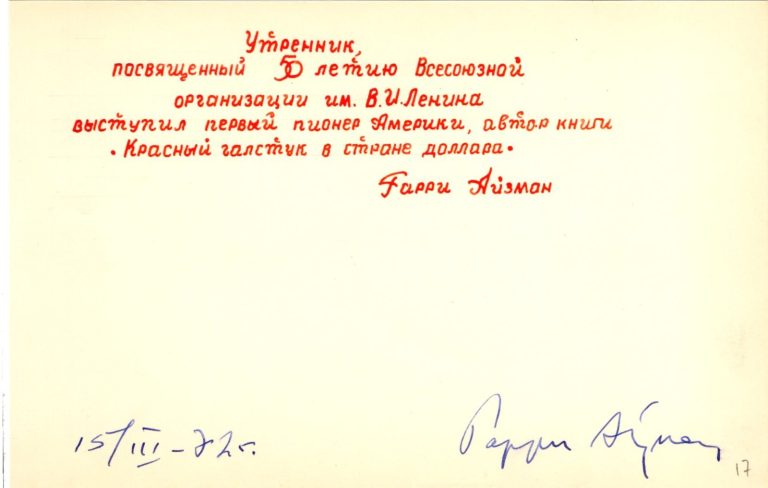 Утренник,
посвященный 50 летию Всесоюзной
организации им. В.И.Ленина
выступил первый пионер Америки, автор книги
• Красный галстук в стране доллара •
Гарри Айзман
15/III-72г. Гарри Айзман
17